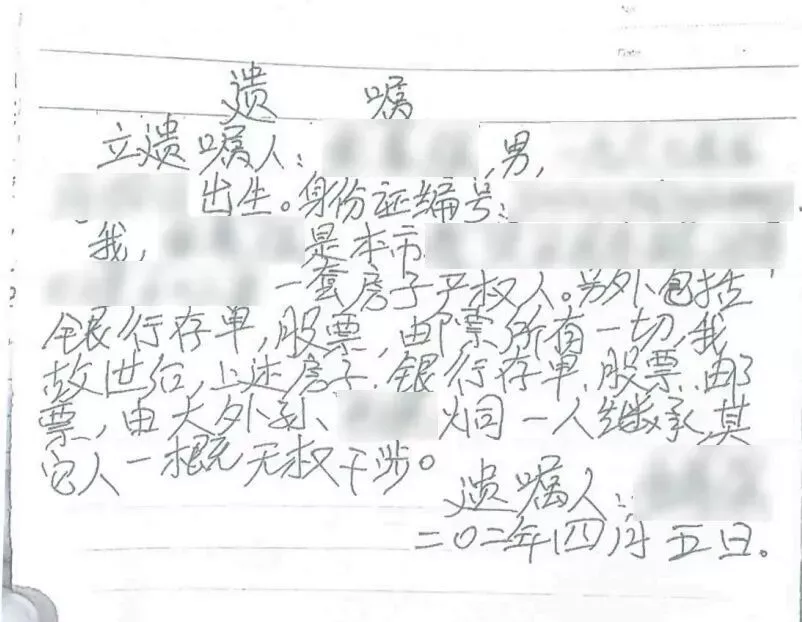 No.
Date
遗 嘱
立遗嘱人： ,男,
出生。身份证编号：
我, 是本市
一套房子产权人。另外包括
银行存单,股票,邮票所有一切,我
故世后,上述房子.银行存单.股票.邮
票,由大外孙、 炯一人继承,其
它人一概无权干涉。
遗嘱人：
二〇二年四月五日。